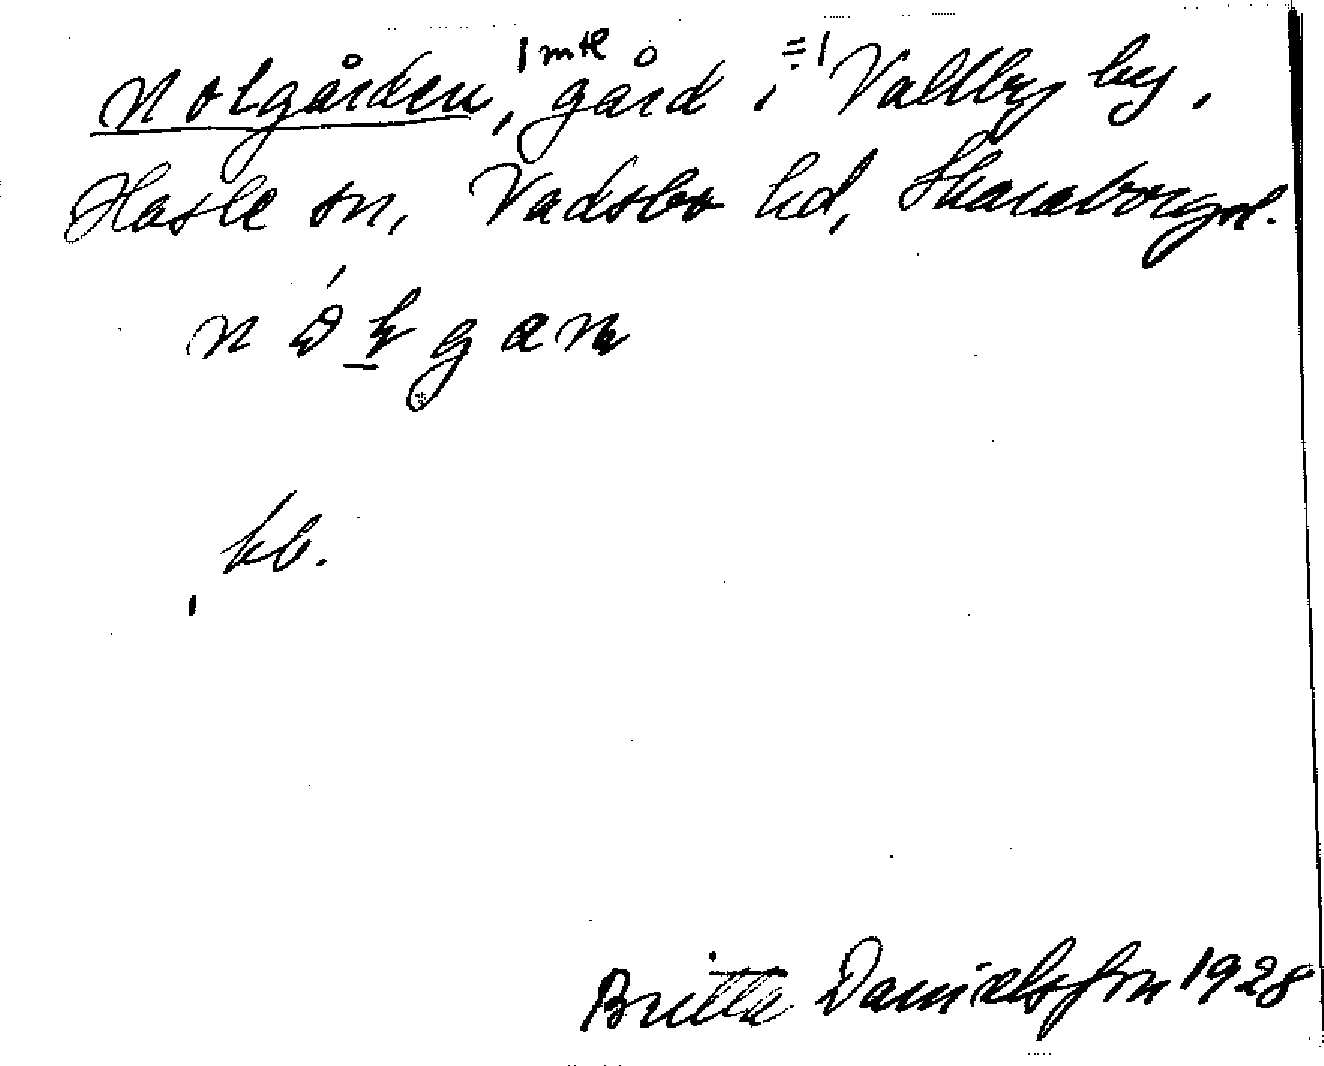 Nolgården, 1 mtl gård i =1 Vallby by,
Hassle sn, Vadsbo hd, Skaraborgs l.
kb.
Britta Danielsson 1928